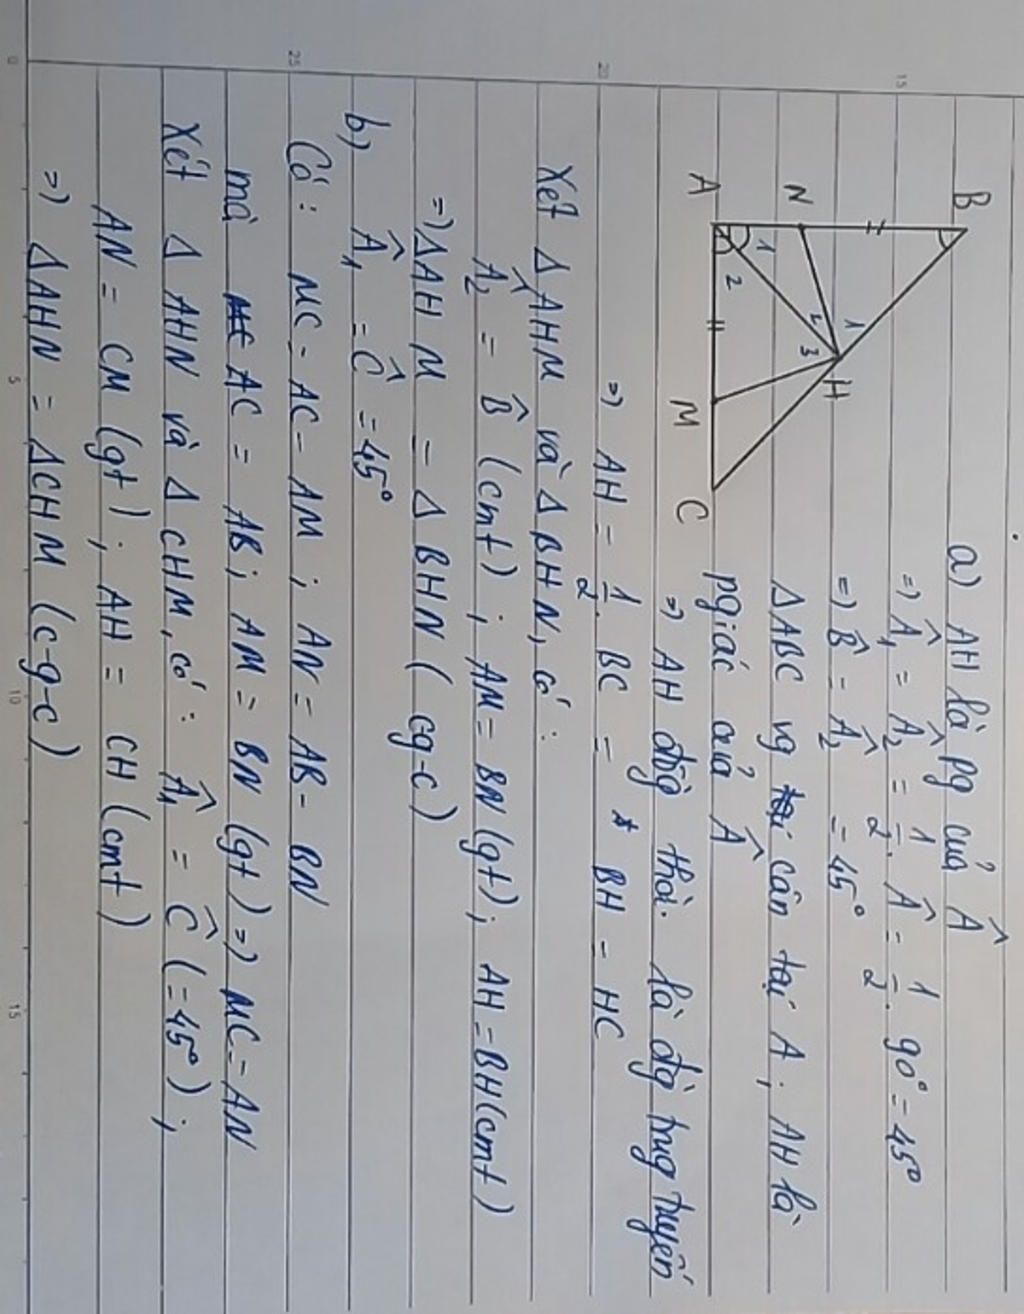 a) AH là pg của Â
=> Â₁ = Â₂ = 1/2. Â = 1/2. 90° = 45°
=> B̂ = Â₂ = 45°
ΔABC vg cân tại A; AH là
pgiác của Â
=> AH đồg thời là đg trug tuyến
=> AH = 1/2. BC = BH = HC
B
N
A
M
C
H
1
2
1
2
3
Xét ΔAHM và ΔBHN, có:
Â₂ = B̂ (cmt); AM = BN (gt); AH = BH (cmt)
=> ΔAHM = ΔBHN (cg-c)
b) Â₁ = Ĉ = 45°
Có: MC = AC - AM; AN = AB - BN
mà AC = AB; AM = BN (gt) => MC = AN
Xét Δ AHN và Δ CHM, có: Â₁ = Ĉ (=45°);
AN = CM (gt); AH = CH (cmt)
=> ΔAHN = ΔCHM (c-g-c)
0
5
10
15
25
20
15